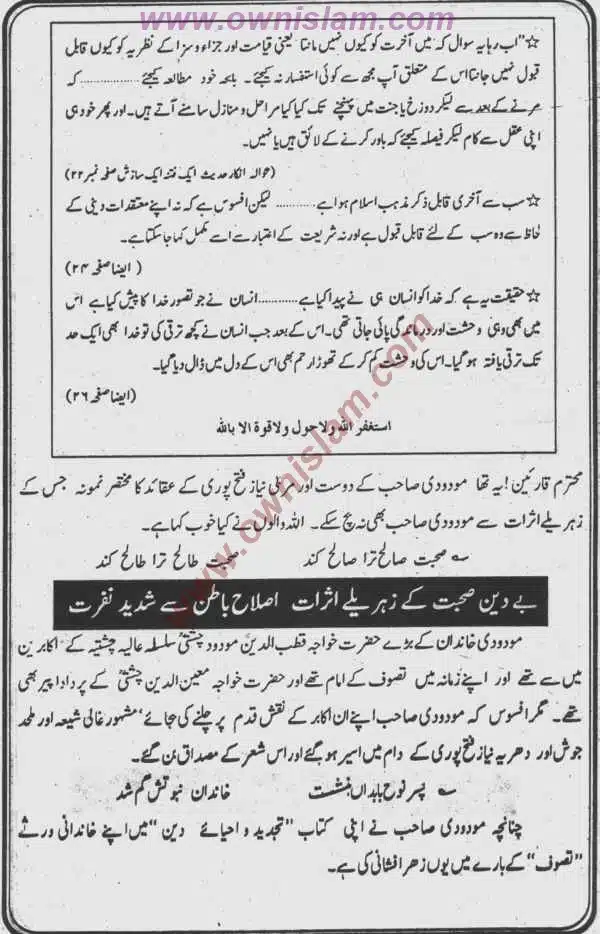 www.ownislam.com
☆ "اب رہا یہ سوال کہ میں آخرت کو کیوں نہیں مانتا یعنی قیامت اور جزاء و سزا کے نظریہ کو کیوں قابل
قبول نہیں جانتا اس کے متعلق آپ مجھ سے کوئی استفسار نہ کیجئے۔ بلکہ خود مطالعہ کیجئے ............ کہ
مرنے کے بعد سے لیکر دوزخ یا جنت میں پہنچنے تک کیا کیا مراحل و منازل سامنے آتے ہیں۔ اور پھر خود ہی
اپنی عقل سے کام لیکر فیصلہ کیجئے کہ باور کرنے کے لائق ہیں یا نہیں۔
(حوالہ انکار حدیث ایک فتنہ ایک سازش صفحہ نمبر ۲۲)
☆ سب سے آخری قابل ذکر مذہب اسلام ہوا ہے ............ لیکن افسوس ہے کہ نہ اپنے معتقدات دینی کے
لحاظ سے وہ سب کے لئے قابل قبول ہے اور نہ شریعت کے اعتبار سے اسے مکمل کہا جا سکتا ہے۔
(ایضا صفحہ ۲۴)
☆ حقیقت یہ ہے کہ خدا کو انسان ہی نے پیدا کیا ہے ............ انسان نے جو تصور خدا کا پیش کیا ہے اس
میں بھی وہی وحشت اور درماندگی پائی جاتی تھی۔ اس کے بعد جب انسان نے کچھ ترقی کی تو خدا بھی ایک حد
تک ترقی یافتہ ہو گیا۔ اس کی وحشت کم کر کے تھوڑا رحم بھی اس کے دل میں ڈال دیا گیا۔
(ایضا صفحہ ۲۶)
استغفر اللہ ولا حول ولا قوة الا باللہ
محترم قارئین! یہ تھا مودودی صاحب کے دوست اور مربی نیاز فتح پوری کے عقائد کا مختصر نمونہ جس کے
زہریلے اثرات سے مودودی صاحب بھی نہ بچ سکے۔ اللہ والوں نے کیا خوب کہا ہے۔
؎ صحبت صالح ترا صالح کند صحبت طالح ترا طالح کند
بے دین صحبت کے زہریلے اثرات اصلاح باطن سے شدید نفرت
مودودی خاندان کے بڑے حضرت خواجہ قطب الدین مودود چشتیؒ سلسلہ عالیہ چشتیہ کے اکابرین
میں سے تھے اور اپنے زمانہ میں تصوف کے امام تھے اور حضرت خواجہ معین الدین چشتیؒ کے پردادا پیر بھی
تھے۔ مگر افسوس کہ مودودی صاحب اپنے ان اکابر کے نقش قدم پر چلنے کی بجائے 'مشہور غالی شیعہ اور ملحد
جوش اور دھریہ نیاز فتح پوری کے دام میں اسیر ہو گئے اور اس شعر کے مصداق بن گئے۔
؎ پسر نوح بابداں بنشست خاندان نبوتش گم شد
چنانچہ مودودی صاحب نے اپنی کتاب "تجدید و احیائے دین" میں اپنے خاندانی ورثے
"تصوف" کے بارے میں یوں زھر افشانی کی ہے۔
www.ownislam.com